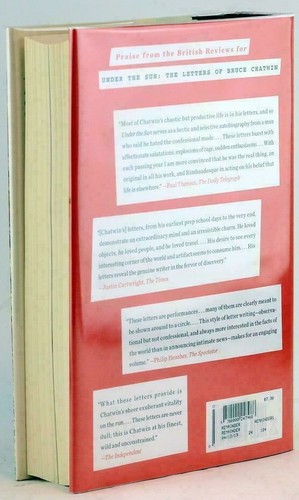 Praise from the British Reviews for
UNDER THE SUN: THE LETTERS OF BRUCE CHATWIN
"Most of Chatwin's chaotic but productive life is in his letters, and so
Under the Sun serves as a brilliant and selective autobiography from a man
who said he hated the confessional mode. . . . These letters burst with
affectionate salutations, explosions of rage, sudden enthusiasms. . . . With
each passing year I am more convinced that he was the real thing, an
original in all his work, and Rimbaudesque in acting on his belief that
life is elsewhere." —Paul Theroux, The Daily Telegraph
"[Chatwin's] letters, from his earliest prep school days to the very end,
demonstrate an extraordinary mind and an irresistible charm. He loved
objects, he loved people, and he loved travel. . . . His desire to see every
interesting corner of the world and artifact seems to consume him. . . . His
letters reveal the genuine writer in the fever of discovery."
—Justin Cartwright, The Times
"These letters are performances . . . many of them are clearly meant to
be shown around to a circle. . . . This style of letter writing—observa-
tional but not confessional, and always more interested in the facts of
the world than in announcing intimate news—makes for an engaging
volume." —Philip Hensher, The Spectator
"What these letters provide is
Chatwin's sheer exuberant vitality
on the run. . . . These letters are never
dull; this is Chatwin at his finest,
wild and unconstrained."
—The Independent
REMAINDER
REMAINDER